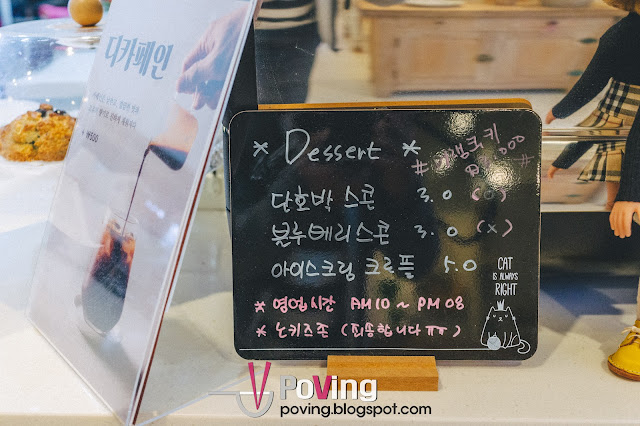 디카페인
* Dessert *
단호박 스콘 3.0 (o)
블루베리스콘 3.0 (x)
아이스크림 크로플 5.0
* 영업시간 AM10 ~ PM 08
* 노키즈존 (죄송합니다ㅠㅠ)
CAT
IS ALWAYS
RIGHT
PoVing
poving.blogspot.com